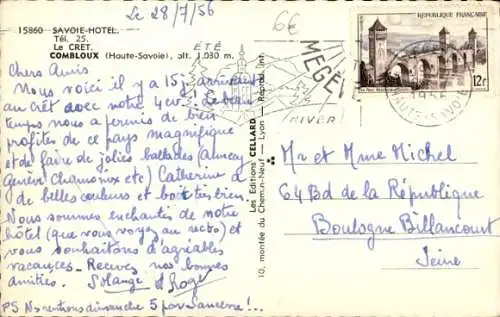 Le 28/7/56
6€
15860 - SAVOIE-HOTEL.
Tél. 25.
Le CRET.
COMBLOUX (Haute-Savoie), alt. 1.030 m.
Chers Amis
Nous voici il y a 15j arrivant
au crêt avec notre 4 cv. Le beau
temps nous a permis de bien
profiter de ce pays magnifique
et de faire de jolies ballades (Annecy
Genève Chamonix etc) Catherine a
de belles couleurs et boit très bien.
Nous sommes enchantés de notre
hôtel (que vous voyez au recto) et
vous souhaitons d'agréables
vacances. Recevez nos bonnes
amitiés. Solange et Roger
PS Ns rentrons dimanche 5 par Sancerre !..
Les Editions CELLARD
10, montée du Chemin-Neuf — Lyon — Reprod. Int.
ÉTÉ
MEGÈVE
HIVER
HAUTE-SAVOIE
REPUBLIQUE FRANÇAISE
12F
Mr et Mme Michel
64 Bd de la République
Boulogne Billancourt
Seine